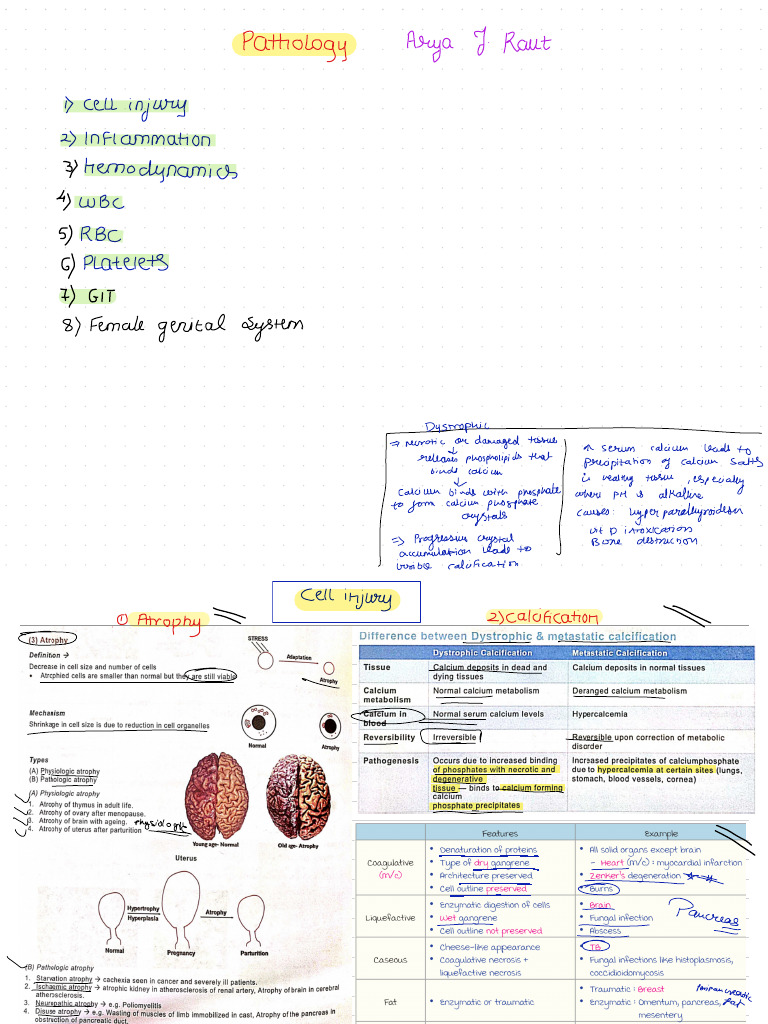 Pathology Arya J. Raut
1) Cell injury
2) Inflammation
3) Hemodynamics
4) WBC
5) RBC
6) Platelets
7) GIT
8) Female genital System
Dystrophic
⇒ necrotic or damaged tissue
↓
releases phospholipids that
binds calcium
↓
Calcium binds with phosphate
to form calcium phosphate
crystals
⇒ Progressive crystal
accumulation leads to
visible calcification
↑ serum calcium leads to
precipitation of calcium salts
in healthy tissue, especially
where pH is alkaline
causes: hyperparathyroidism
vit D intoxication
Bone destruction
Cell injury
① Atrophy
(3) Atrophy
Definition →
Decrease in cell size and number of cells
• Atrophied cells are smaller than normal but they are still viable
STRESS
Adaptation
Atrophy
Mechanism
Shrinkage in cell size is due to reduction in cell organelles
Normal Atrophy
Types
(A) Physiologic atrophy
(B) Pathologic atrophy
(A) Physiologic atrophy
1. Atrophy of thymus in adult life.
2. Atrophy of ovary after menopause.
3. Atrophy of brain with ageing.
4. Atrophy of uterus after parturition
Young age- Normal Old age- Atrophy
Uterus
Hypertrophy
Hyperplasia
Atrophy
Normal Pregnancy Parturition
(B) Pathologic atrophy
1. Starvation atrophy → cachexia seen in cancer and severely ill patients.
2. Ischaemic atrophy → atrophic kidney in atherosclerosis of renal artery, Atrophy of brain in cerebral
atherosclerosis.
3. Neuropathic atrophy → e.g. Poliomyelitis
4. Disuse atrophy → e.g. Wasting of muscles of limb immobilized in cast, Atrophy of the pancreas in
obstruction of pancreatic duct.
2) Calcification
Difference between Dystrophic & metastatic calcification
Dystrophic Calcification Metastatic Calcification
Tissue Calcium deposits in dead and Calcium deposits in normal tissues
dying tissues
Calcium Normal calcium metabolism Deranged calcium metabolism
metabolism
Calcium in Normal serum calcium levels Hypercalcemia
blood
Reversibility Irreversible Reversible upon correction of metabolic
disorder
Pathogenesis Occurs due to increased binding Increased precipitates of calciumphosphate
of phosphates with necrotic and due to hypercalcemia at certain sites (lungs,
degenerative stomach, blood vessels, cornea)
tissue — binds to calcium forming
calcium
phosphate precipitates
Features Example
Coagulative
(M/C)
• Denaturation of proteins
• Type of dry gangrene
• Architecture preserved
• Cell outline preserved
• All solid organs except brain
– Heart (M/C) : myocardial infarction
• Zenker's degeneration
• Burns
Liquefactive
• Enzymatic digestion of cells
• Wet gangrene
• Cell outline not preserved
• Brain
• Fungal infection
• Abscess
Pancreas
Caseous
• Cheese-like appearance
• Coagulative necrosis +
liquefactive necrosis
• TB
• Fungal infections like histoplasmosis,
coccidioidomycosis
Fat
• Enzymatic or traumatic
• Traumatic : Breast
• Enzymatic : Omentum, pancreas,
mesentery
fat